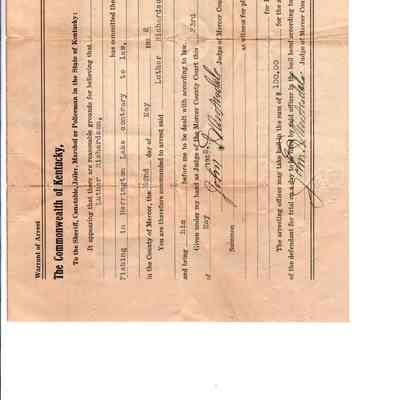 Warrant of Arrest
The Commonwealth of Kentucky,
To the Sheriff, Constable, Jailer, Marshal or Policeman in the State of Kentucky:
It appearing that there are reasonable grounds for believing that
Luther Richardson,
has committed the
Fishing in Herrington Lake contrary to law,
in the County of Mercer, the 22nd day of May 192
You are therefore commanded to arrest said Luther Richardson
and bring him before me to be dealt with according to law.
Given under my hand as Judge of the Mercer County Court this 23rd
of May 192
Judge of Mercer
Summon as witness for
The arresting officer may take bail in the sum of $ 100.00 for
of the defendant for trial on a day to be fixed by said officer in the bail bond according
Judge of Mercer